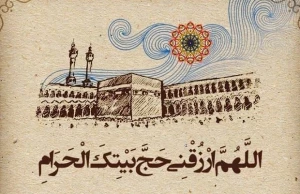 اللَّهُمَّ ارْزُقْنِي حَجَّ بَيْتِكَ الْحَرَامِ